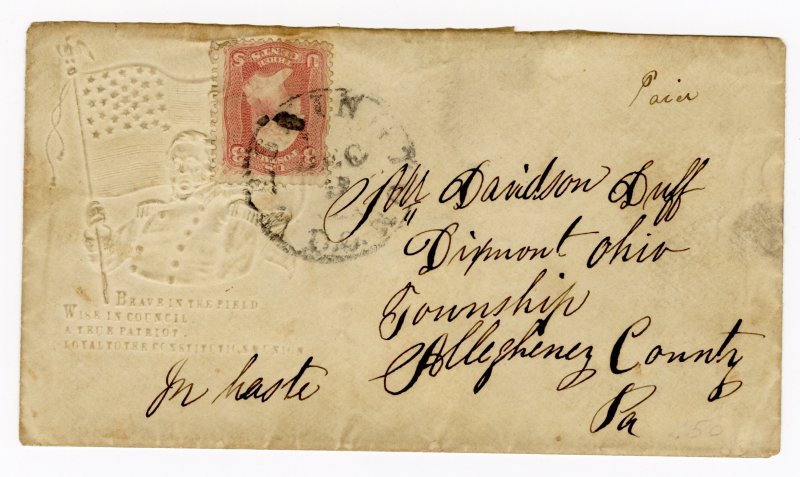 Paier
Mr Davidson Duff
Dixmont Ohio
Township
Allegheney County
Pa
In haste
BRAVE IN THE FIELD,
WISE IN COUNCIL
A TRUE PATRIOT.
LOYAL TO THE CONSTITUTION & UNION
U S
3 3
D.C.
50